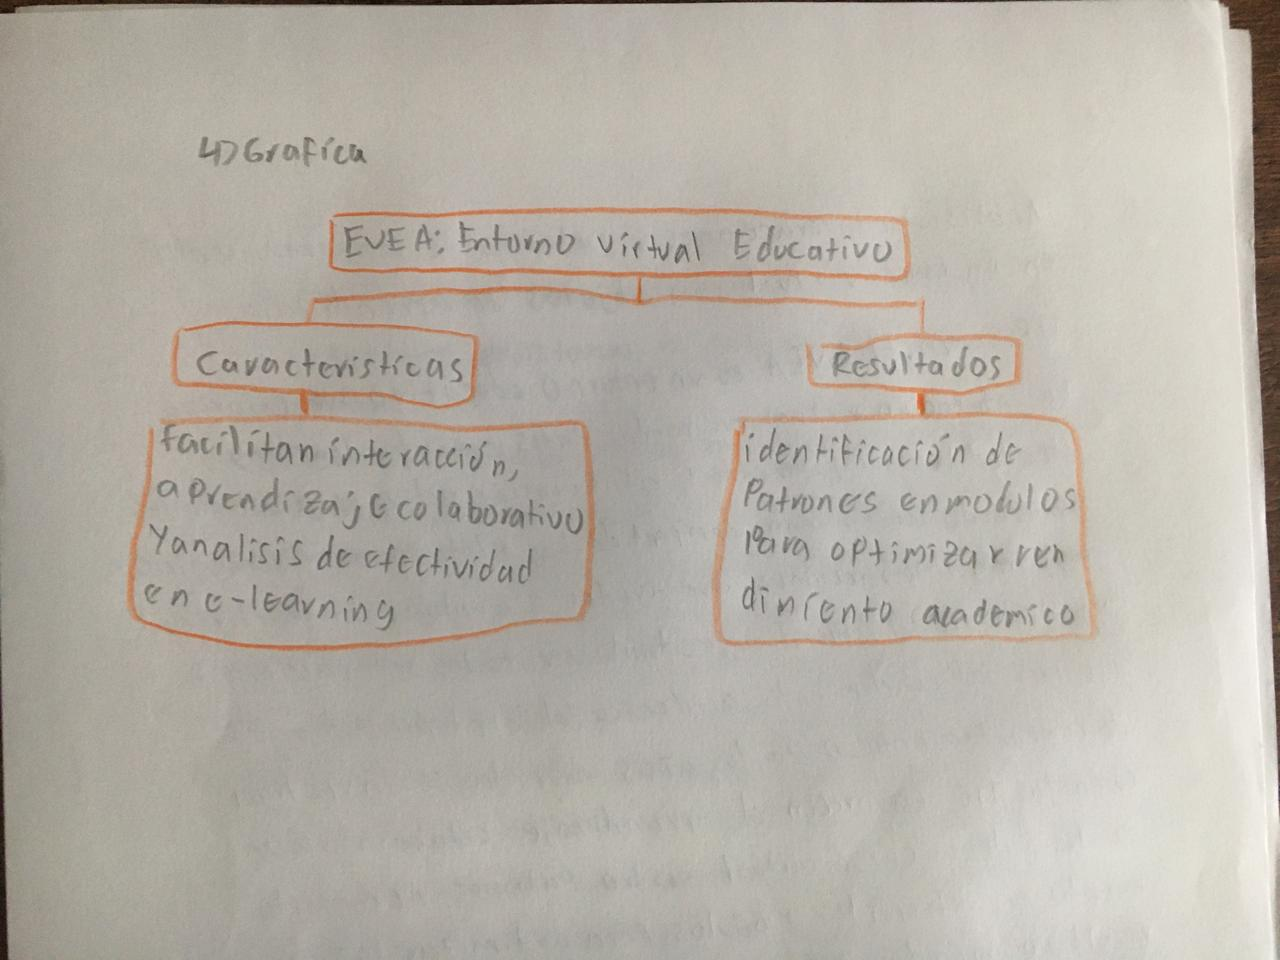 4) Grafica
EVEA: Entorno Virtual Educativo
Caracteristicas
Resultados
facilitan interacción,
aprendizaje colaborativo
y analisis de efectividad
en e-learning
identificación de
Patrones en modulos
Para optimizar ren
dimiento academico